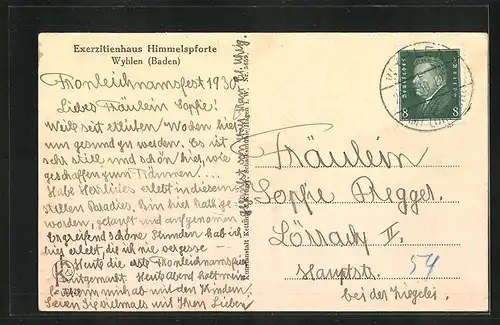 Exerzitienhaus Himmelspforte
Wyhlen (Baden)
Fronleichnamsfest 1930
Liebes Fräulein Sophie!
Weile seit etlichen Wochen hier
um gesund zu werden. Es ist
sehr still und schön hier, wie
geschaffen zum Träumen....
Habe Herrliches erlebt in diesem
stillen Paradies. Bin hier kath. ge-
worden, getauft und aufgenommen
Ergreifend schöne Stunden hab ich
hier erlebt, die ich nie vergesse
Heute die erste Fronleichnamsfeier
mitgemacht. Heute abend hält mein
mich ab mit den Kindern.
Seien Sie vielmals mit Ihren Lieben
gegrüßt von Ihrer
Kunstanstalt
DEUTSCHES REICH
8 8
Fräulein
Sophie Regger.
Lörrach II.
Hauptstr. 54
bei der Ziegelei